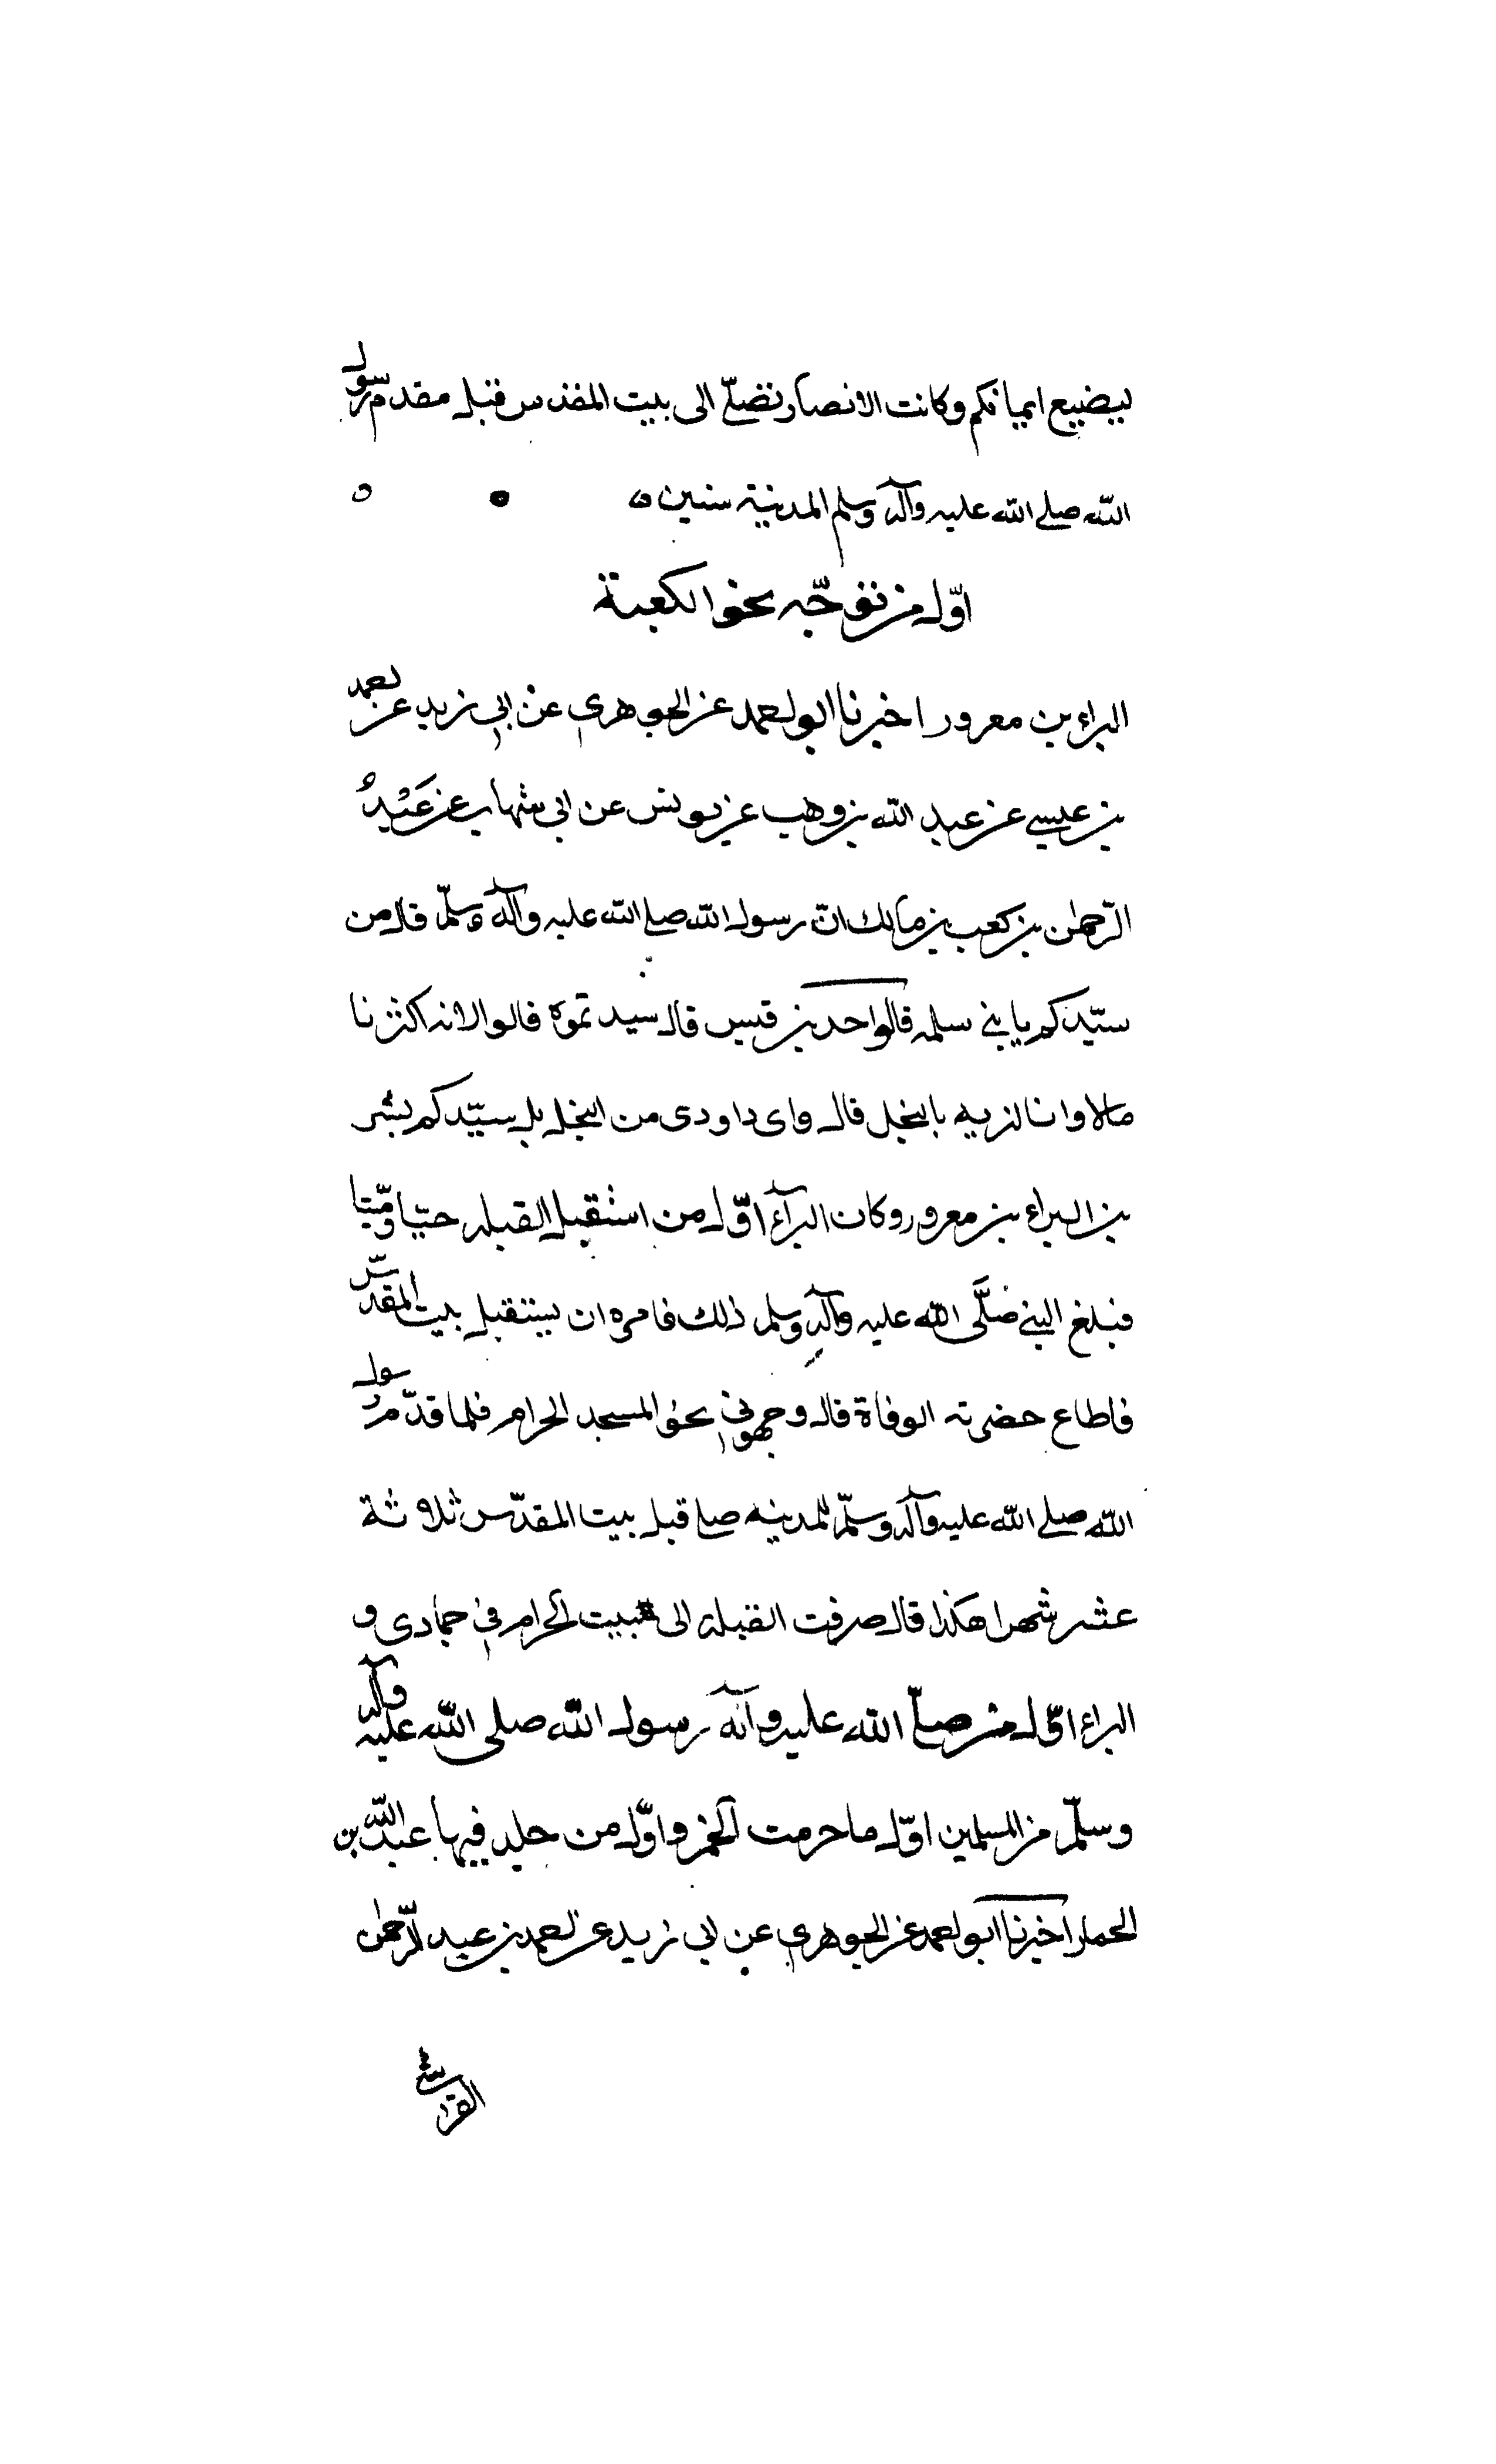 ليضيع ايمانكم وكانت الانصار تصلّى الى بيت المقدس قبل مقدم رسول
الله صلى الله عليه وآله وسلم المدينة سنين
اوّل من توجّه نحو الكعبة
البراء بن معرور اخبرنا ابو احمد عن الجوهرى عن ابى زيد عن احمد
بن عيسى عن عبد الله بن وهب عن يونس عن ابى شهاب عن عَبْدِ
الرّحمٰن بن كعب بن مالك انّ رسول الله صلى الله عليه وآله وسلّم قال من
سيّدكم يا بنى سلمه قالوا جد بن قيس قال سيد تموه قالوا لانه اكثرنا
مالا وانا لنزيه بالبخل قال واى داء ودى من البخل بل سيّدكم بشر
بن البراء بن معرور وكان البرآء اوّل من استقبل القبله حيّا وميّتا
فبلغ النبى صَلَّى الله عليه وآله وسلم ذلك فامره ان يستقبل بيت المقدّس
فاطاع حضرته الوفاة قال وجهونى نحو المسجد الحرام فلما قدّم رسول
الله صلى الله عليه وآله وسلّم المدينه صلى قبل بيت المقدّس ثلاثة
عشر شهرا هكذا قال صرفت القبله الى البيت الحرام فى جمادى و
البراء اوّل من صلّى الله عليه وآله رسول الله صلى الله عليه وآله
وسلّم من المسلمين اوّل ما حرمت الخمر واوّل من جلد فيها عبد الله بن
الحمار اخبرنا ابو احمد عن الجوهرى عن ابى زيد عن احمد بن عبد الرّحمٰن
القرشى